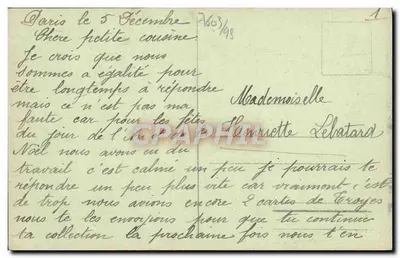 Paris le 5 Décembre
Chère petite cousine
Je crois que nous
sommes à égalité pour
être longtemps à répondre
mais ce n'est pas ma
faute car pour les fêtes
du jour de l'An et de
Noël nous avons eu du
travail c'est calmé un peu je pourrais te
répondre un peu plus vite car vraiment c'est
de trop nous avions encore 2 cartes de Troyes
nous te les envoyions pour que tu continue
ta collection la prochaine fois nous t'en
7603/93
1
Mademoiselle
Henriette Lebatard